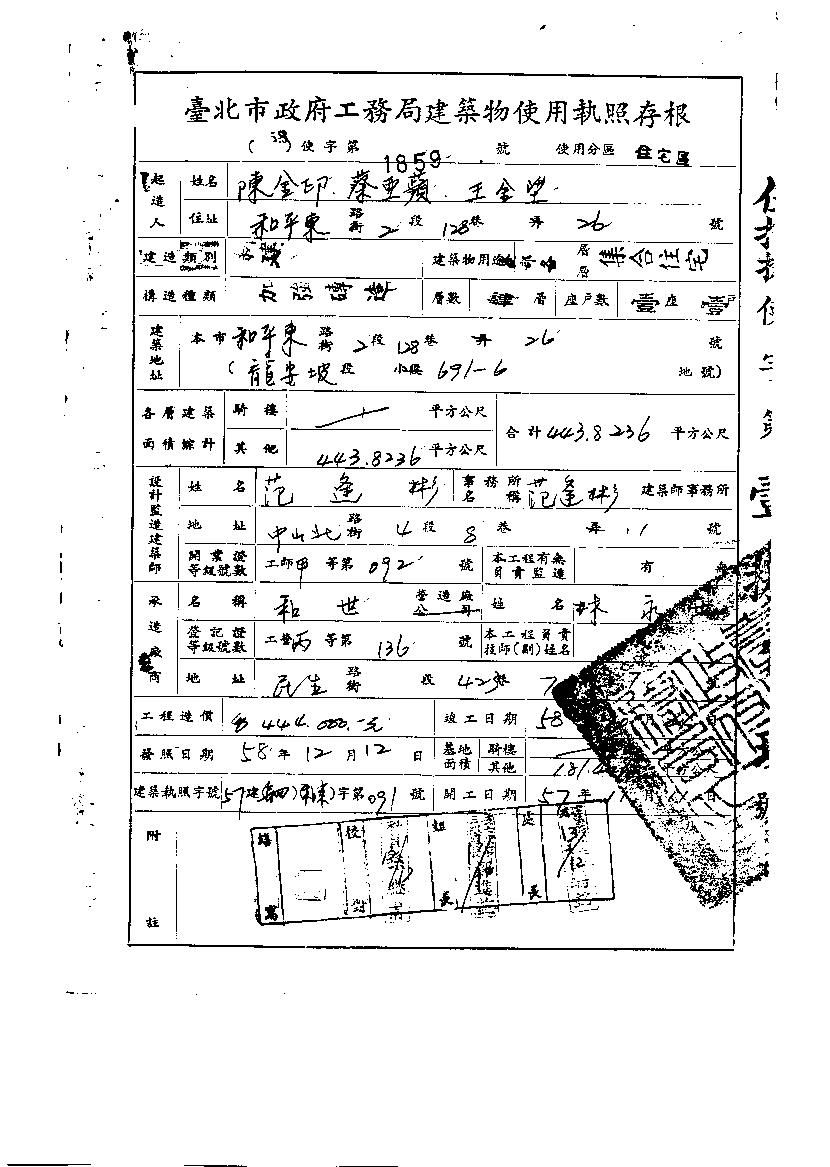 臺北市政府工務局建築物使用執照存根
使字第 1859 號 使用分區 住宅區
起造人 姓名 陳金印 蔡亜蘋 王金
住址 和平東 路街 2 段 128 巷 弄 26 號
建造類別 建築物用途 層層 集合住宅
構造種類 加強磚造 層數 肆 層 座戶數 壹 座 壹 戶
建築地址 本市 和平東 路街 2 段 128 巷 弄 26 號
(龍安坡 段 小段 691-6 地號)
各層建築面積綜計 騎樓 平方公尺 合計 443.8236 平方公尺
其他 443.8236 平方公尺
設計監造建築師 姓名 范逢彬 事務所名稱 范逢彬 建築師事務所
地址 中山北 路街 4 段 8 巷 弄 號
開業證等級號數 工師甲等第 092 號 本工程有無負責監造 有
承造廠商 名稱 和世 營造廠公司 姓名 林永
登記證等級號數 工營丙等第 136 號 本工程負責技師(副)姓名
地址 民生 路街 段 423巷 7
工程造價 444.000.-元 竣工日期 58
發照日期 58年12月12日 基地面積 騎樓
其他
建築執照字號 57建 字第 091 號 開工日期 57年
附註
繕寫 校對 組長 處長
13/12